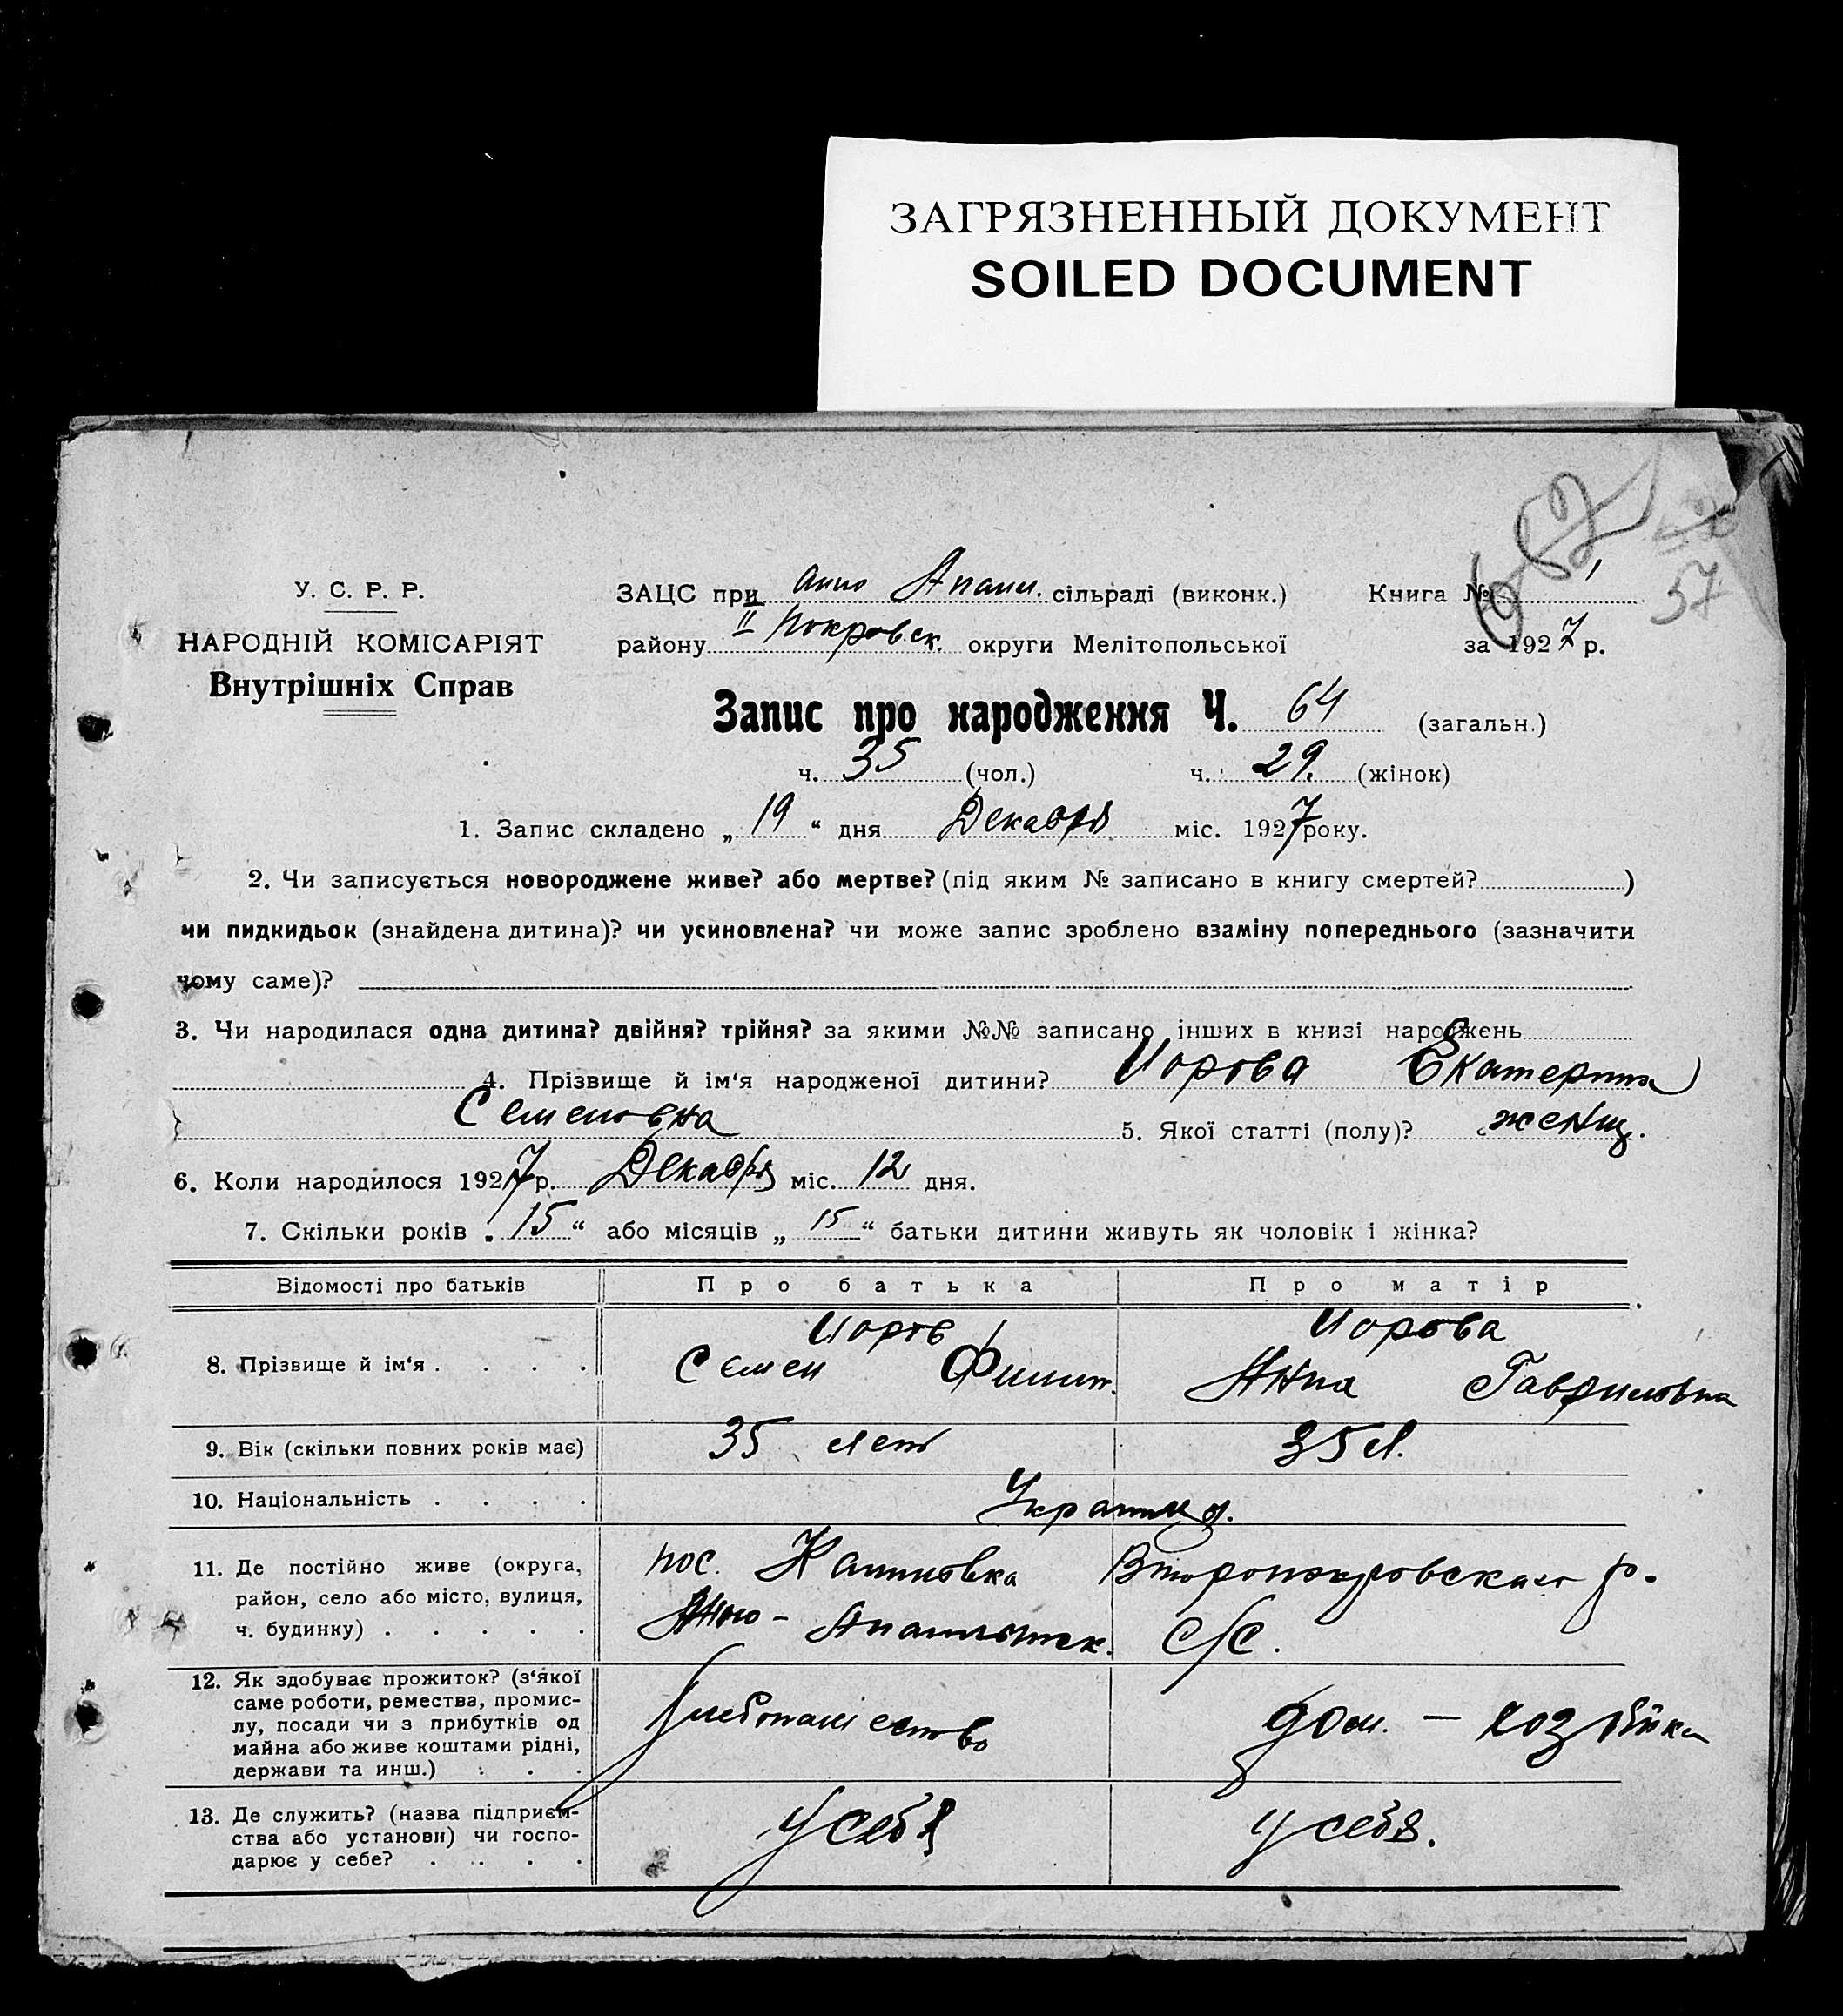 ЗАГРЯЗНЕННЫЙ ДОКУМЕНТ
SOILED DOCUMENT
57
У. С. Р. Р.
НАРОДНІЙ КОМІСАРІЯТ
Внутрішніх Справ
ЗАЦС при Анно Апанл. сільраді (виконк.) Книга № 1
району II Покровск. округи Мелітопольської за 1927 р.
Запис про народження Ч. 64 (загальн.)
ч. 35 (чол.) ч. 29. (жінок)
1. Запис складено „ 19 “ дня Декабря міс. 1927 року.
2. Чи записується новороджене живе? або мертве? (під яким № записано в книгу смертей? )
чи пидкидьок (знайдена дитина)? чи усиновлена? чи може запис зроблено взаміну попереднього (зазначити
чому саме)?
3. Чи народилася одна дитина? двійня? трійня? за якими №№ записано інших в книзі народжень
4. Прізвище й ім‘я народженої дитини? Иорова Екатерина
Семеновна 5. Якої статті (полу)? женщ.
6. Коли народилося 1927 р. Декабря міс. 12 дня.
7. Скільки років „ 15 “ або місяців „ 15 “ батьки дитини живуть як чоловік і жінка?
Відомості про батьків Про батька Про матір
8. Прізвище й ім‘я . . . . Иоров Семен Филип. Иорова Анна Гавриловна
9. Вік (скільки повних років має) 35 лет 35 л.
10. Національність . . . . Украинц.
11. Де постійно живе (округа, район, село або місто, вулиця, ч. будинку) . . . . . пос. Калиновка Второпокровскаго р. Анно- с/с.
12. Як здобуває прожиток? (з‘якої саме роботи, ремества, промислу, посади чи з прибутків од майна або живе коштами рідні, держави та инш.) . . . хлебопашество дом. – хозяйка
13. Де служить? (назва підприємства або установи) чи господарює у себе? . . . . у себя у себя.